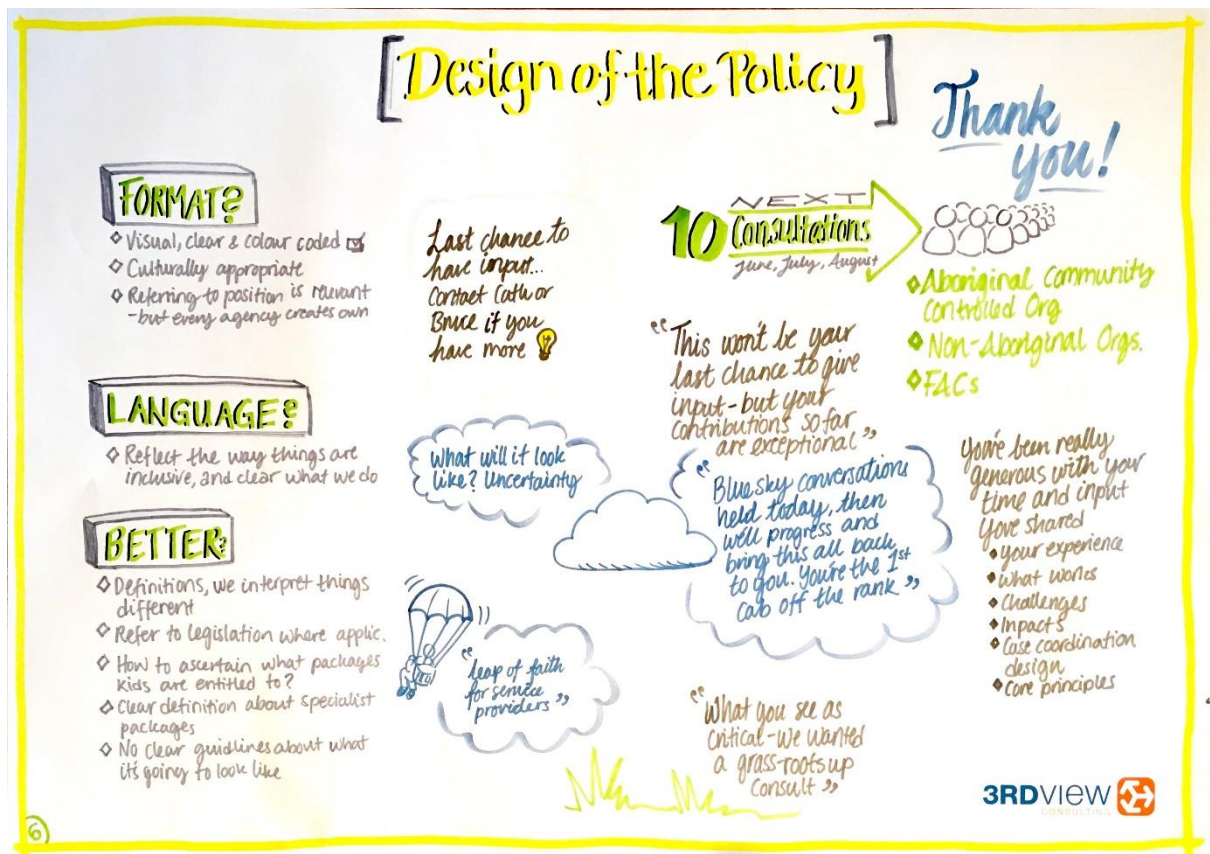 [Design of the Policy]
Thank
you!
FORMAT?
Visual, clear & colour coded
Culturally appropriate
Referring to position is relevant
-but every agency creates own
LANGUAGE?
Reflect the way things are
inclusive, and clear what we do
BETTER?
Definitions, we interpret things
different
Refer to legislation where applic.
How to ascertain what packages
kids are entitled to?
Clear definition about specialist
packages
No clear guidlines about what
it's going to look like
Last chance to
have input...
Contact Cath or
Bruce if you
have more
What will it look
like? Uncertainty
"leap of faith
for service
providers"
NEXT
10 Consultations
June, July, August
Aboriginal Community
Controlled Org
Non-Aboriginal Orgs.
FACs
"This won't be your
last chance to give
input-but your
contributions so far
are exceptional"
"Blue sky conversations
held today, then
we'll progress and
bring this all back
to you. You're the 1st
cab off the rank"
"What you see as
critical-we wanted
a grass-roots up
consult"
You've been really
generous with your
time and input
Yove shared
your experience
what works
Challenges
Inpacts
Case coordination
design
Core principles
3RDVIEW
CONSULTING
6